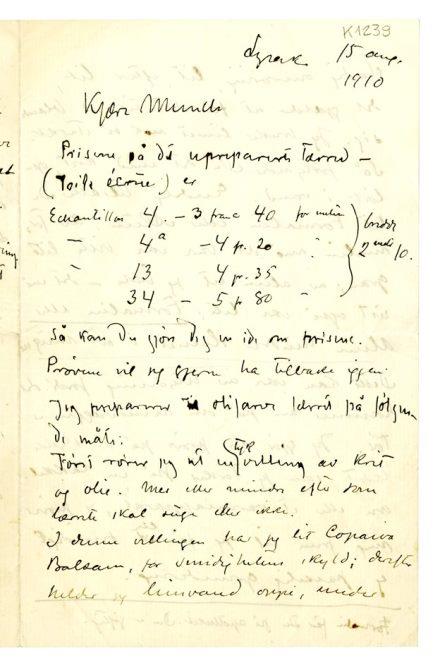 K1239
Lysaker 15 aug.
1910
Kjære Munch
Priserne på dé upreparerte lærred –
(Toile écrue) er
Echantillon 4. – 3 franc 40 for metren
– 4a – 4 fr. 20 "
" 13 4 fr. 35
34 – 5 fr 80 "
bredde
2 met 10.
Så kan Du gjøre Dig en idé om priserne.
Prøverne vil jeg gjerne ha tilbake igjen.
Jeg preparerer ikke oljarve lærred på følgen-
de måte:
Først rører jeg ut en tyk velling av krit
og olie. Mer eller mindre efter som
lærredet skal suge eller ikke.
I denne vellingen har jeg lit Copaiva
Balsam, for smidighetens skyld; derefter
helder jeg linvand oppi, under